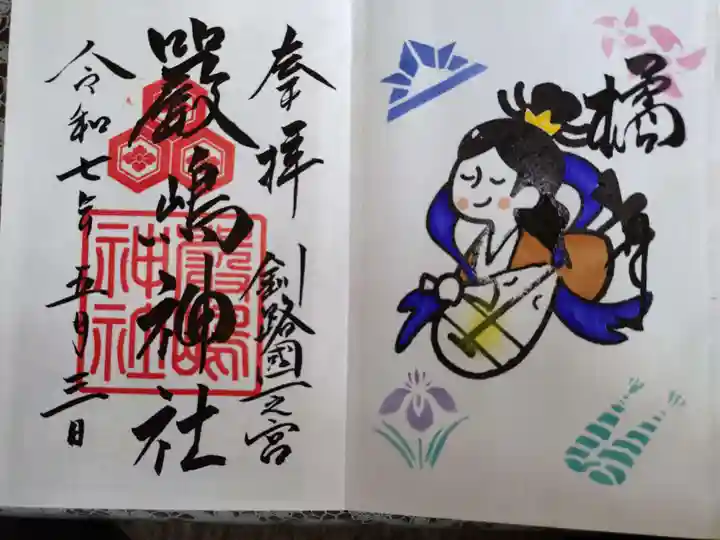 奉拝
釧路國一之宮
嚴嶋神社
嚴嶋
神社
令和七年五月三日
橘